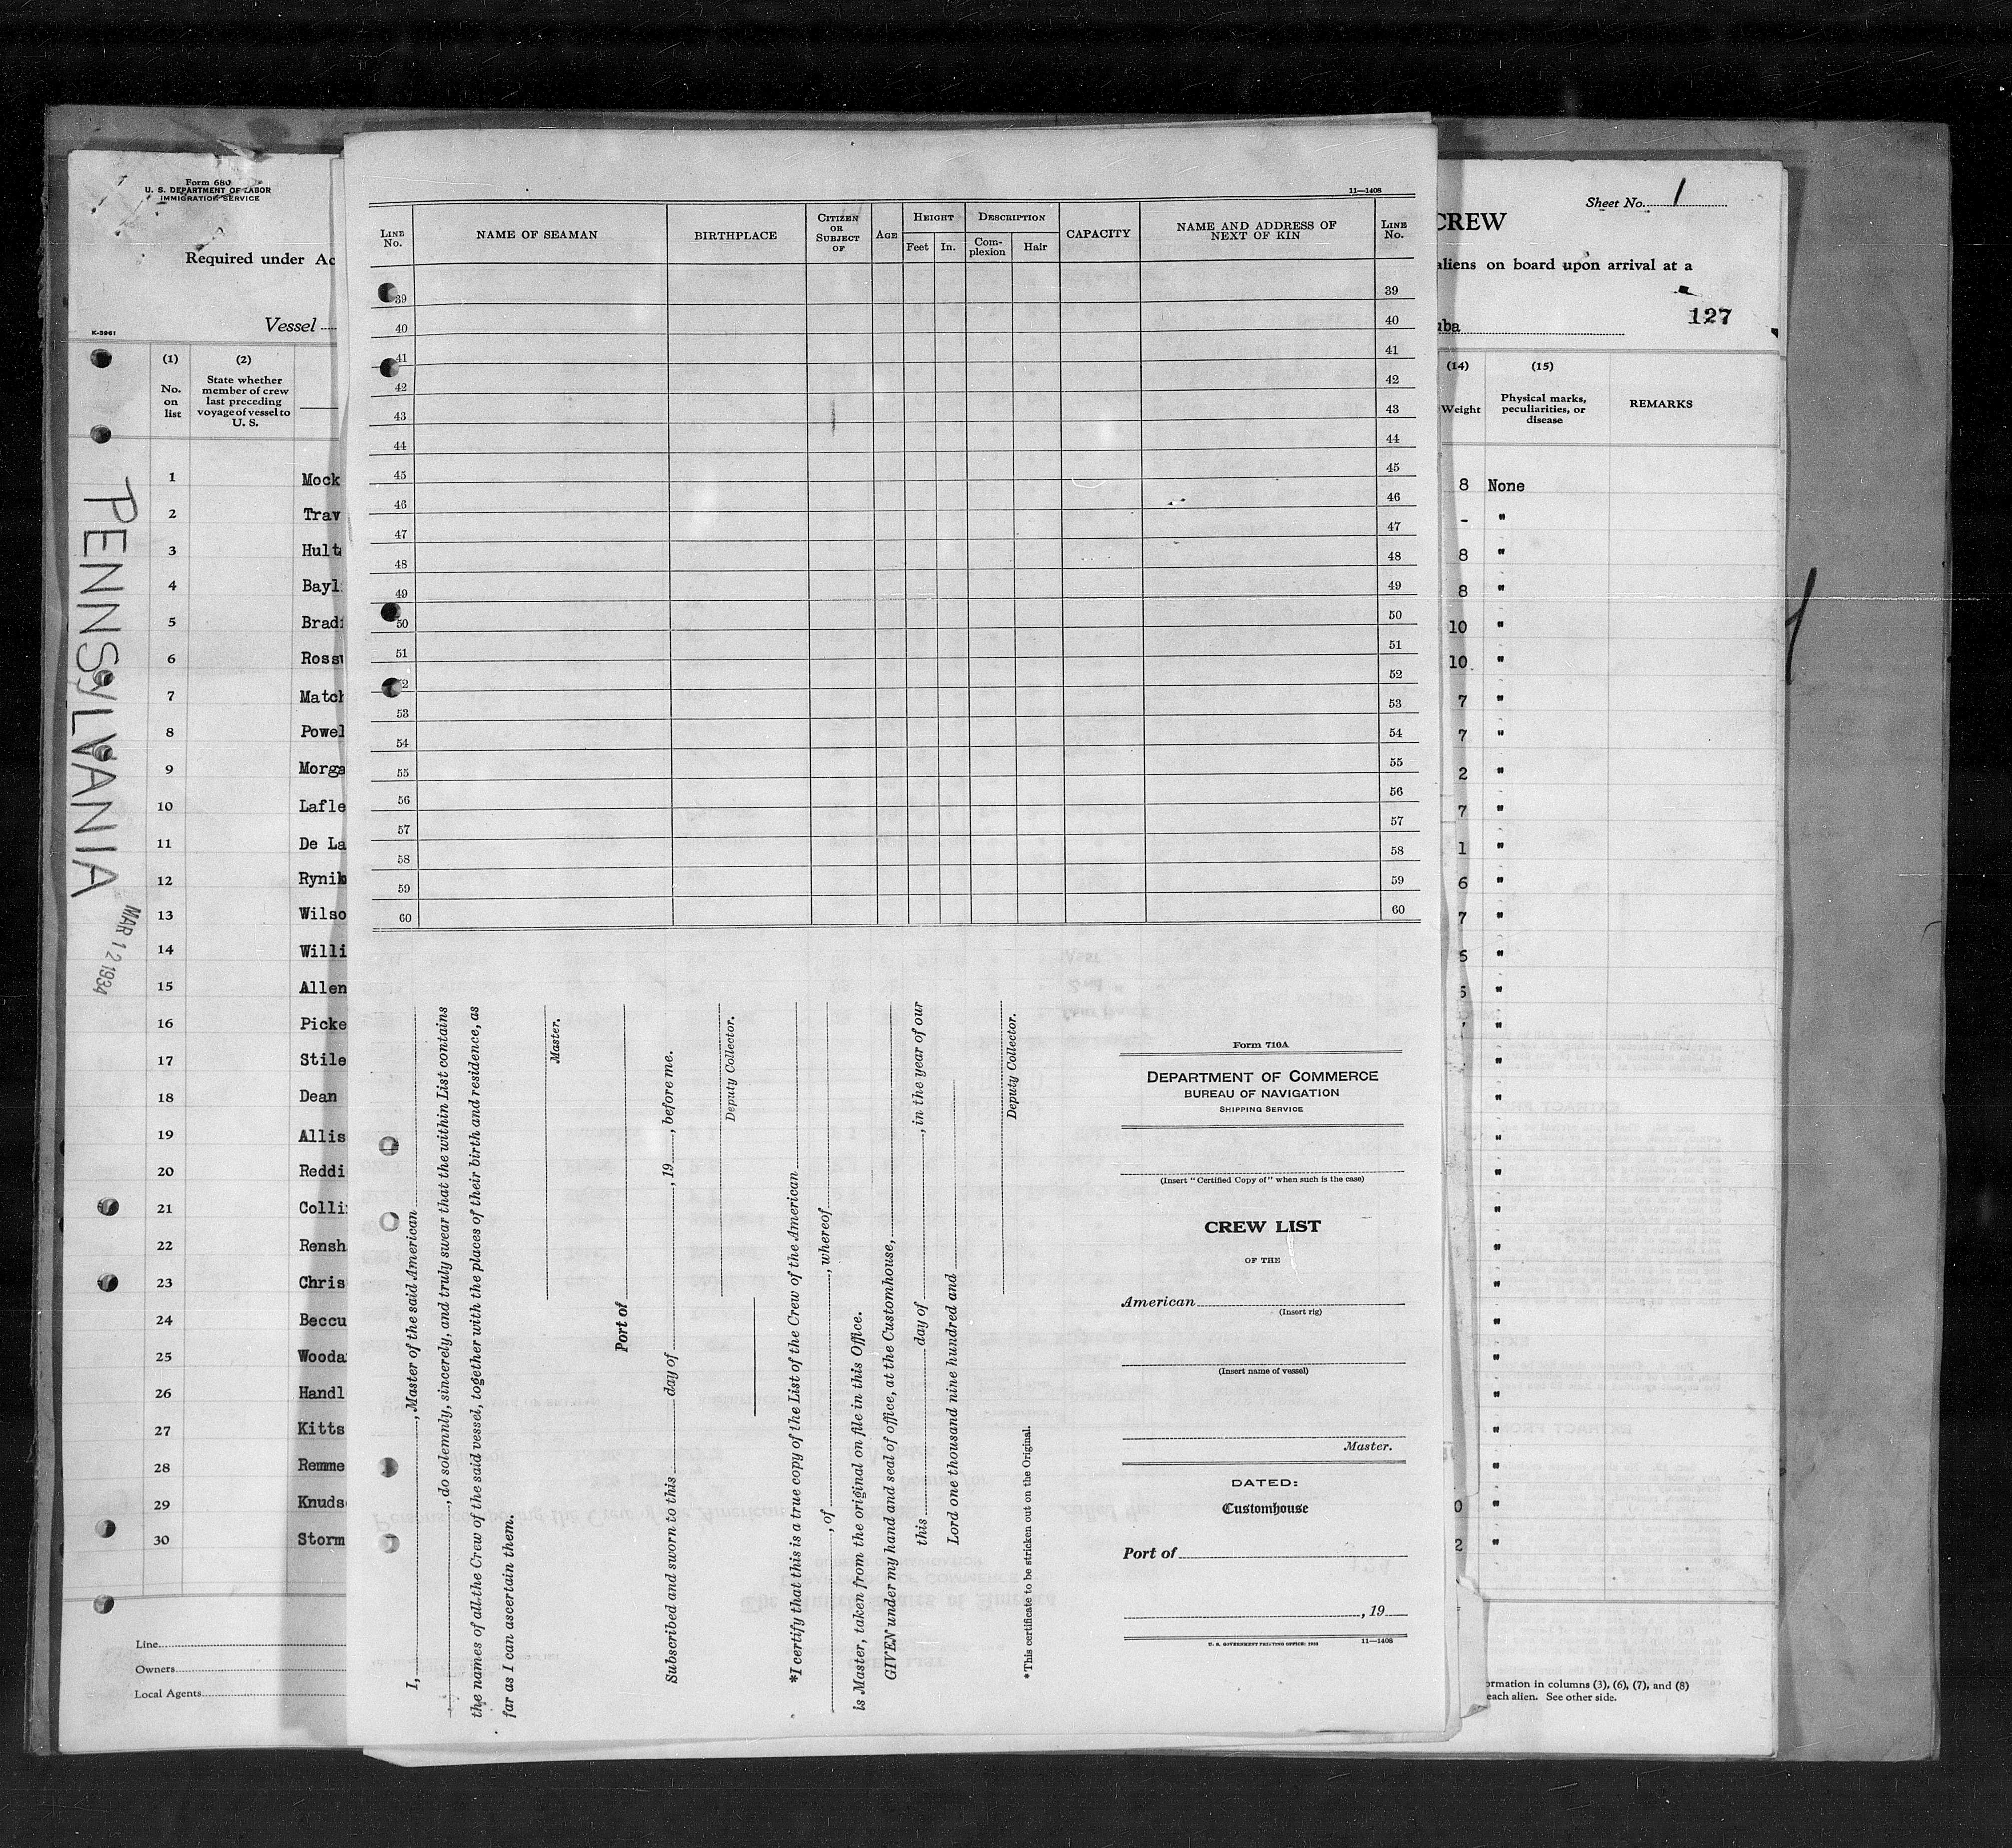 Form 680
U. S. DEPARTMENT OF LABOR
IMMIGRATION SERVICE
Required under Ac
Vessel
K-5961
(1)
No.
on
list
(2)
State whether
member of crew
last preceding
voyage of vessel to
U. S.
PENNSYLVANIA
MAR 12 1934
1 Mock
2 Trav
3 Hult
4 Bayl
5 Brad
6 Ross
7 Matc
8 Powel
9 Morga
10 Lafle
11 De La
12 Rynik
13 Wilso
14 Willi
15 Allen
16 Picke
17 Stile
18 Dean
19 Allis
20 Reddi
21 Colli
22 Rensh
23 Chris
24 Beccu
25 Wooda
26 Handl
27 Kitts
28 Remme
29 Knuds
30 Storm
Line
Owners
Local Agents
11—1408
LINE No.
NAME OF SEAMAN
BIRTHPLACE
CITIZEN OR SUBJECT OF
AGE
HEIGHT
Feet In.
DESCRIPTION
Com-plexion Hair
CAPACITY
NAME AND ADDRESS OF NEXT OF KIN
LINE No.
39 39
40 40
41 41
42 42
43 43
44 44
45 45
46 46
47 47
48 48
49 49
50 50
51 51
52 52
53 53
54 54
55 55
56 56
57 57
58 58
59 59
60 60
I, , Master of the said American
, do solemnly, sincerely, and truly swear that the within List contains
the names of all the Crew of the said vessel, together with the places of their birth and residence, as
far as I can ascertain them.
Master.
Port of
Subscribed and sworn to this day of , 19 , before me.
Deputy Collector.
*I certify that this is a true copy of the List of the Crew of the American
, of , whereof
is Master, taken from the original on file in this Office.
GIVEN under my hand and seal of office, at the Customhouse,
this day of , in the year of our
Lord one thousand nine hundred and
Deputy Collector.
*This certificate to be stricken out on the Original.
Form 710A
DEPARTMENT OF COMMERCE
BUREAU OF NAVIGATION
SHIPPING SERVICE
(Insert "Certified Copy of" when such is the case)
CREW LIST
OF THE
American
(Insert rig)
(Insert name of vessel)
Master.
DATED:
Customhouse
Port of
, 19
U. S. GOVERNMENT PRINTING OFFICE:
11—1408
Sheet No. 1
CREW
aliens on board upon arrival at a
uba
127
(14)
Weight
(15)
Physical marks,
peculiarities, or
disease
REMARKS
8 None
- "
8 "
8 "
10 "
10 "
7 "
7 "
2 "
7 "
1 "
6 "
7 "
6 "
5 "
"
"
"
"
"
"
"
"
"
"
"
"
"
0 "
2 "
ormation in columns (3), (6), (7), and (8)
each alien. See other side.